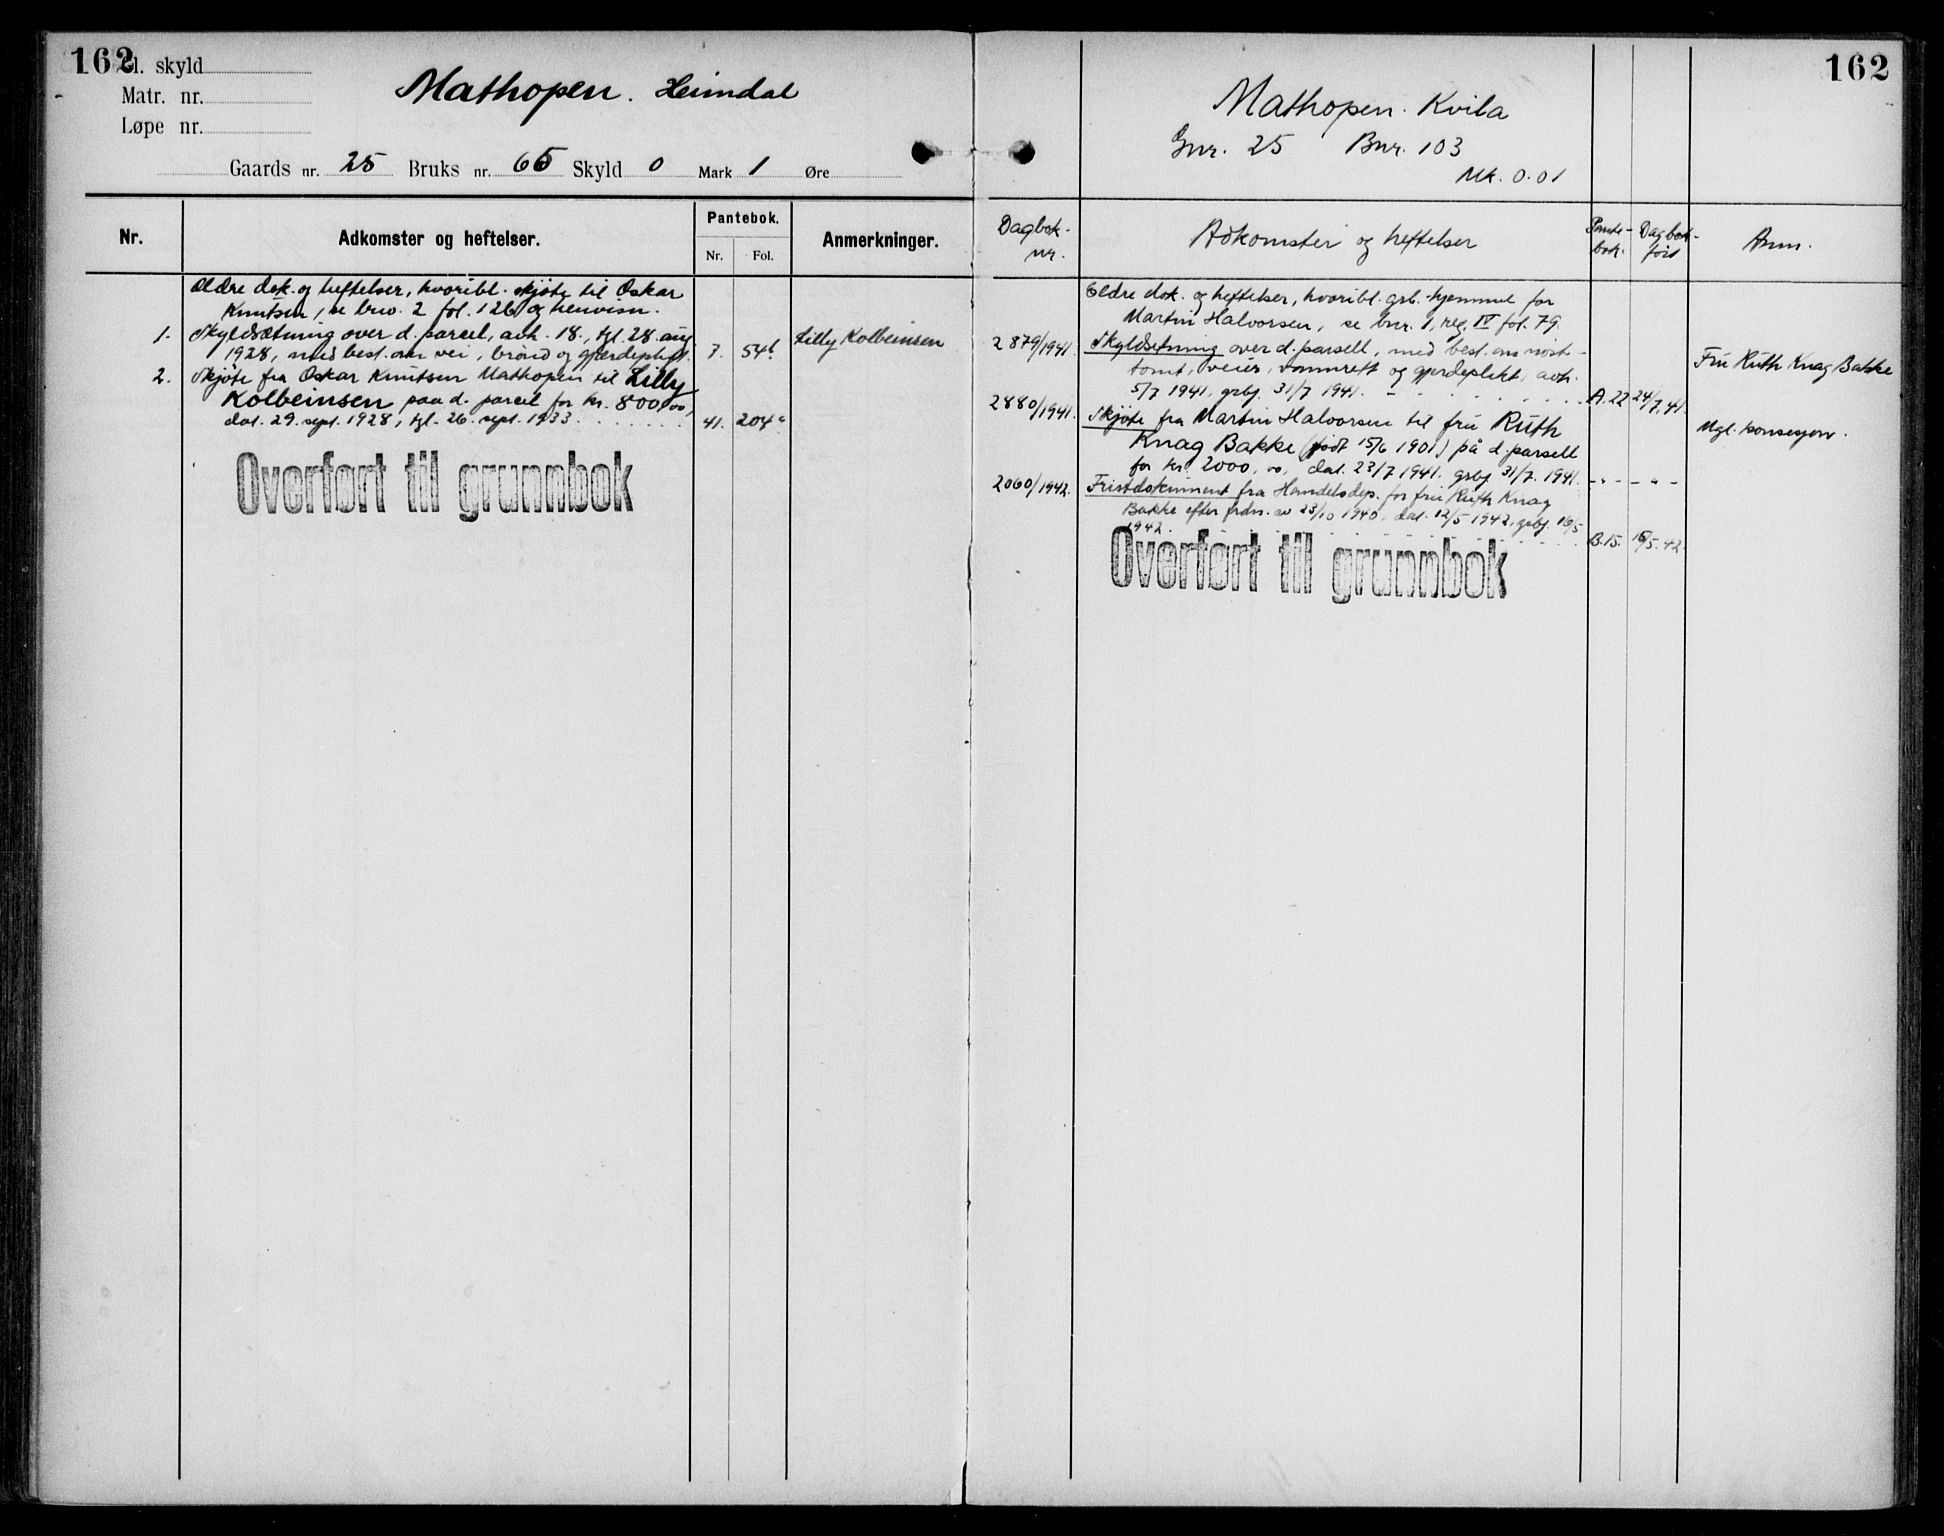 162
Gl. skyld
Matr. nr.
Løpe nr.
Mathopen. Heimdal
Gaards nr. 25 Bruks nr. 65 Skyld 0 Mark 1 Øre
Nr.
Adkomster og heftelser.
Pantebok.
Nr. Fol.
Anmerkninger.
Ældre dok. og heftelser, hvoribl. skjøte til Oskar
Knutsen, se brno. 2 fol. 126 og henvisn.
1. Skyldsætning over d. parcel, avh. 18., tgl. 28. aug
1928, med best. om vei, brønd og gjerdeplikt. 7. 54b Lilly Kolbeinsen
2. Skjøte fra Oskar Knutsen Mathopen til Lilly
Kolbeinsen paa d. parcel for kr. 800,00,
dat. 29. sept. 1928, tgl. 26. sept. 1933. 41. 204a
Overført til grunnbok
162
Mathopen. Kvila
Gnr. 25 Bnr. 103
Mk. 0.01
Dagbok-
nr.
Adkomster og heftelser
Pante-
bok.
Dagbok-
ført
Anm.
Eldre dok. og heftelser, hvoribl. grb.-hjemmel for
Martin Halvorsen, se bnr. 1, reg. IV fol. 79.
2879/1941. Skyldsetning over d. parsell, med best. om nøst-
tomt, veier, vannrett og gjerdeplikt, avh.
5/7 1941, grbf. 31/7 1941. A.22 24/7.41. Fru Ruth Knag Bakke
2880/1941. Skjøte fra Martin Halvorsen til fru Ruth
Knag Bakke (født 15/6 1901) på d. parsell
for kr. 2000,00, dat. 23/7 1941. grbf. 31/7. 1941. -"- -"- Mgl. konsesjon.
2060/1942. Fristdokument fra Handelsdep. for fru Ruth Knag
Bakke efter frdn. av 23/10 1940, dat. 12/5 1942, grbf. 16/5
1942. B.15. 16/5.42.
Overført til grunnbok